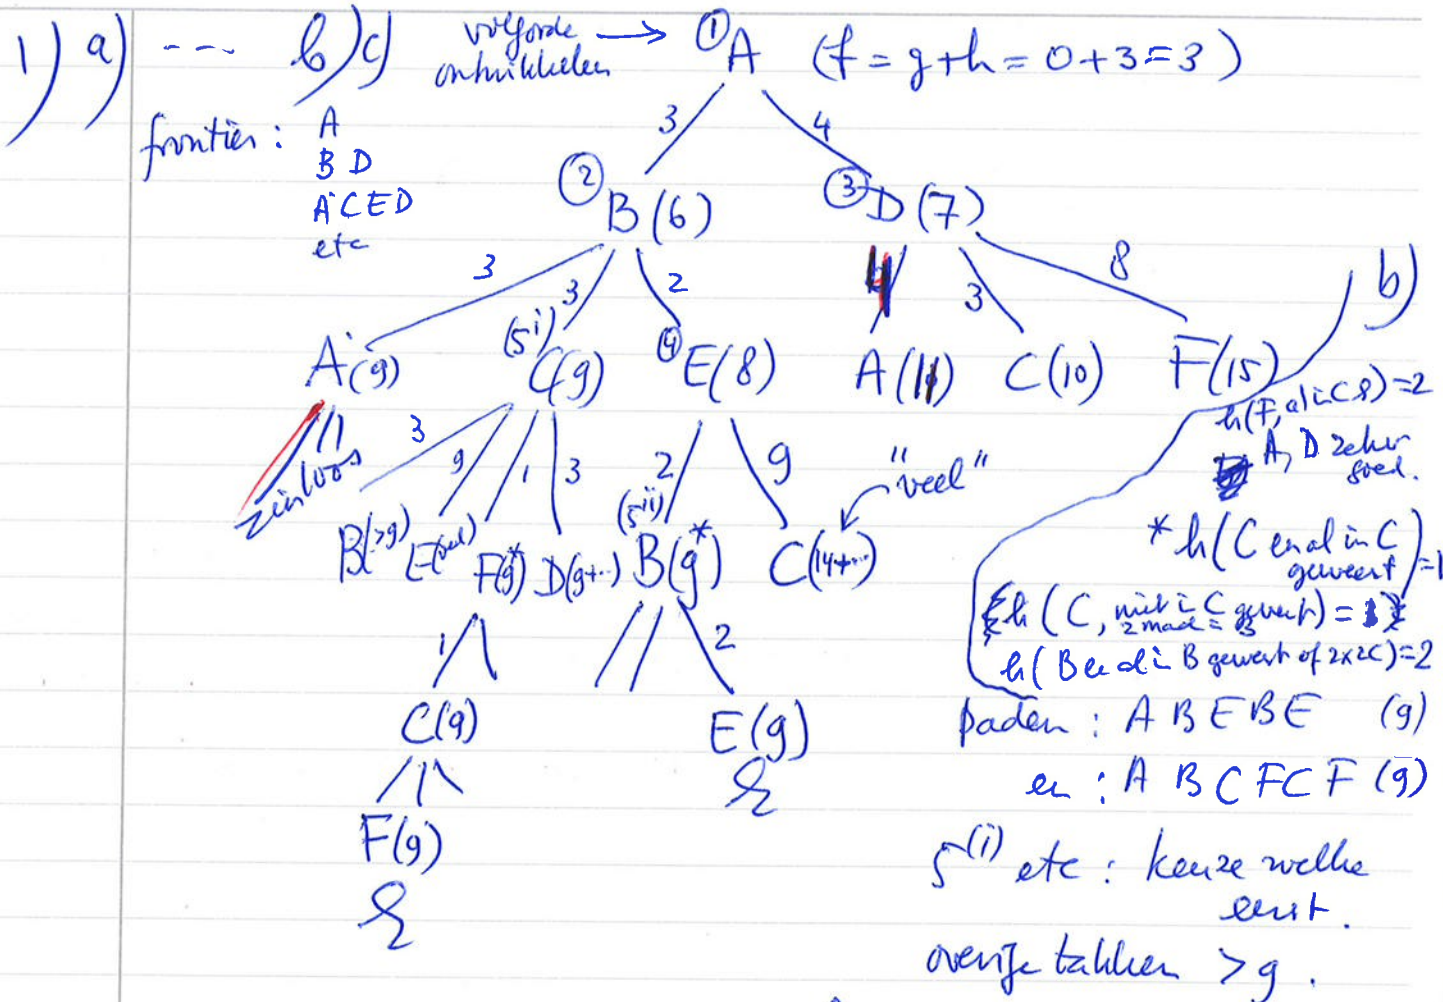 1) a) --- b) c) volgorde ontwikkelen → ① A (f = g+h = 0+3=3)
frontier: A
B D
A C E D
etc
3 4
② B(6) ③ D(7)
3 3 2 3 8 b)
A(9) (5i) C(9) ④ E(8) A(11) C(10) F(15)
h(F, al in C)=2
A, D zeker goed.
zinloos
3 9 1 3 2 9 "veel"
B(>9) E(veel) F(9)* D(9+..) (5ii) B(9)* C(14+...)
* h(C en al in C geweest)=1
h(C, niet in C geweest) =
h(B en al in B geweest of 2x2C)=2
1 2
C(9) E(9)
paden: A B E B E (9)
en: A B C F C F (9)
F(9)
5(i) etc: keuze welke
eerst.
overige takken >9.